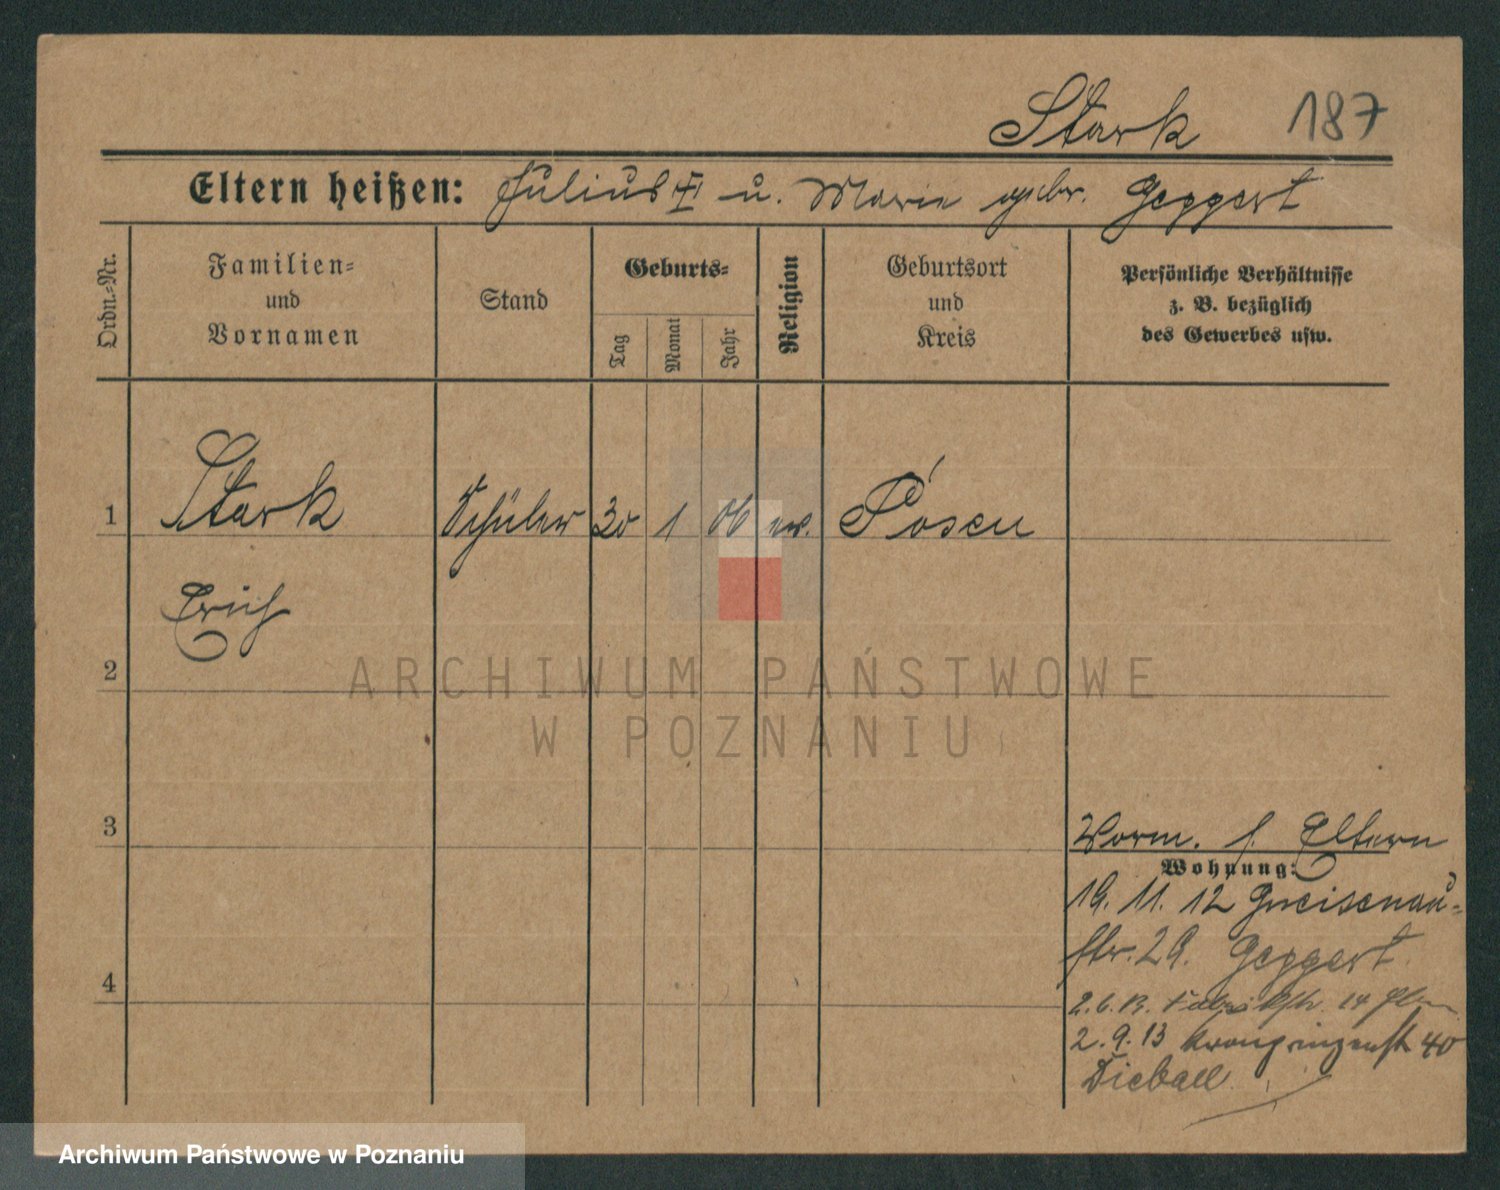 Stark 187
Eltern heißen: Julius † u. Marie gebr. Geppert
Ordn.=Nr.
Familien=
und
Vornamen
Stand
Geburts=
Tag
Monat
Jahr
Religion
Geburtsort
und
Kreis
Persönliche Verhältnisse
z. B. bezüglich
des Gewerbes usw.
1 Stark Schüler 30 1 06 ev. Posen
Erich
2
3
4
Vorm. s. Eltern
Wohnung:
19. 11. 12 Gneisenau=
str. 29. Geppert
2. 6. 13. 14
2. 9. 13 Kronprinzenstr 40
Dieball
ARCHIWUM PAŃSTWOWE
W POZNANIU
Archiwum Państwowe w Poznaniu